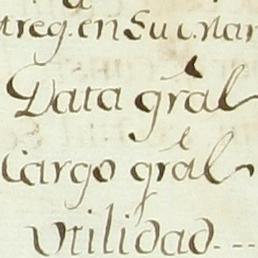 treg. en Su
Data gràl
Cargo gràl
Vtilidad---